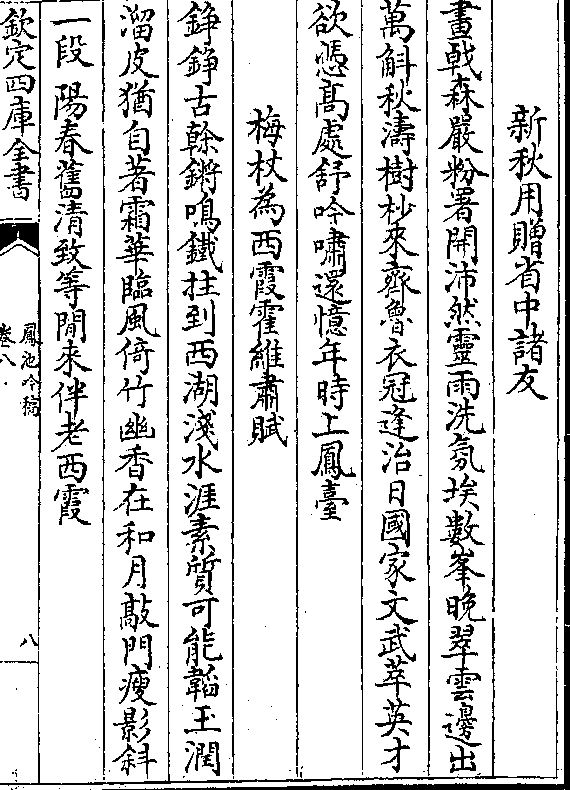 新秋用贈省中諸友
畫戟森嚴粉署開沛然靈雨洗氛埃數峯晚翠雲邊出
萬斛秋濤樹杪來齊魯衣冠逢治日國家文武萃英才
欲慿髙處舒吟嘯還憶年時上鳳臺
梅杖為西霞霍維肅賦
錚錚古榦鏘鳴鐵拄到西湖淺水涯素質可能韜玉潤
溜皮猶自著霜華臨風倚竹幽香在和月敲門瘦影斜
一段陽春舊清致等閒來伴老西霞
欽定四庫全書
鳳池吟稿
卷八
八